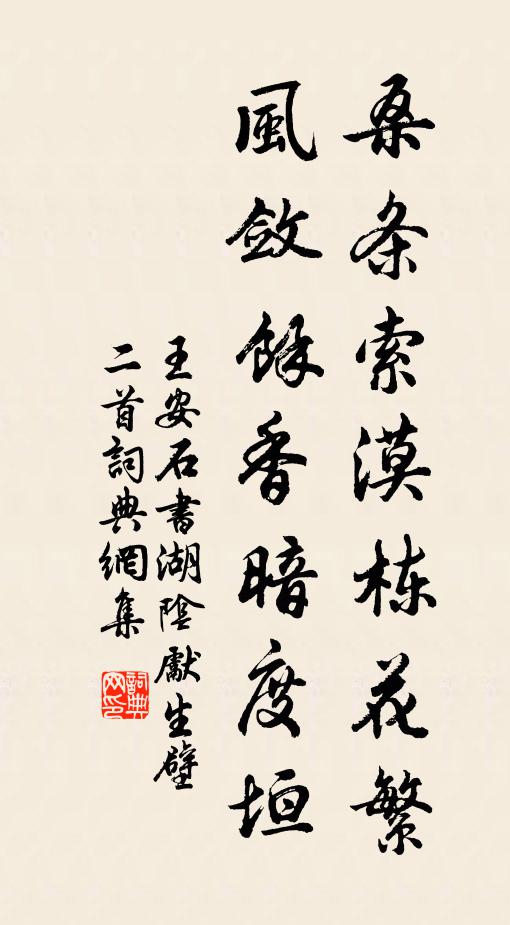 桑条索漠栋花繁
風斂餘香暗度垣
王安石書湖陰獻生壁
二首詞典網集
詞典網印